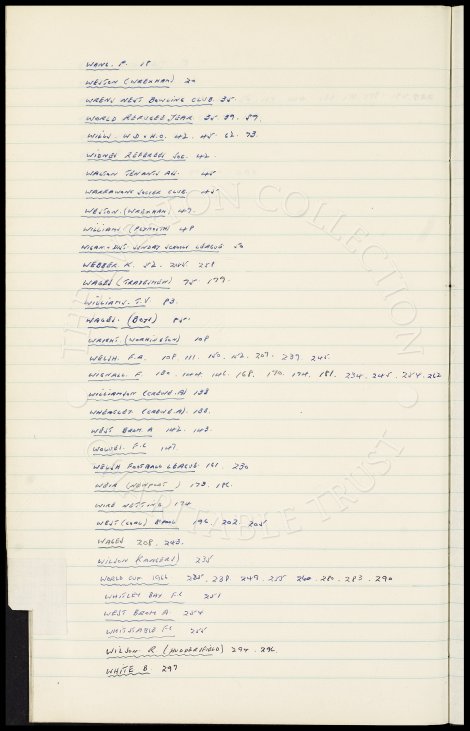 WANG. P. 18
WESTON (WREXHAM) 20
WRENS NEST BOWLING CLUB 35.
WORLD REFUGEE YEAR 35 39. 59
WILLS. W.D & H.O. 42. 45. 62. 73.
WIDNES REFEREES SOC. 42.
WALTON TENANTS AS. 45
SOCCER CLUB. 45
WESTON. (WREXHAM) 47.
WILLIAMS (PLYMOUTH) 48
WIGAN & DIST SUNDAY SCHOOL LEAGUE 50
WEBBER K. 52. 205 258
WAGES (TRADESMEN) 75 179.
WILLIAMS. T.V 83.
WAGES. (BOYS) 85.
WRIGHT (WORKINGTON) 108
WELSH. F.A. 108 111. 150. 152. 207. 239. 245.
WIGNALL. F. 130. 144. 146. 168. 170. 174. 181. 234. 245. 254. 262
WILLIAMSON (CREWE A) 138
WHEATLEY (CREWE A) 138.
WEST BROM A 142. 143.
WOLVES. F.C 147
WELSH FOOTBALL LEAGUE 161 230
WEIR (NEWPORT) 173. 186.
WIRE NETTING 174
WEST 196. 202. 205
WAGES 208. 243.
WILSON RANGERS) 235
WORLD CUP 1966 235. 238 249. 255 260. 280. 283. 290
WHITLEY BAY FC 251
WEST BROM A. 254
WHITSTABLE FC 255
WILSON. R (HUDDERSFIELD) 294. 296
WHITE B 297
THE COLLECTION
TABLE TRUST